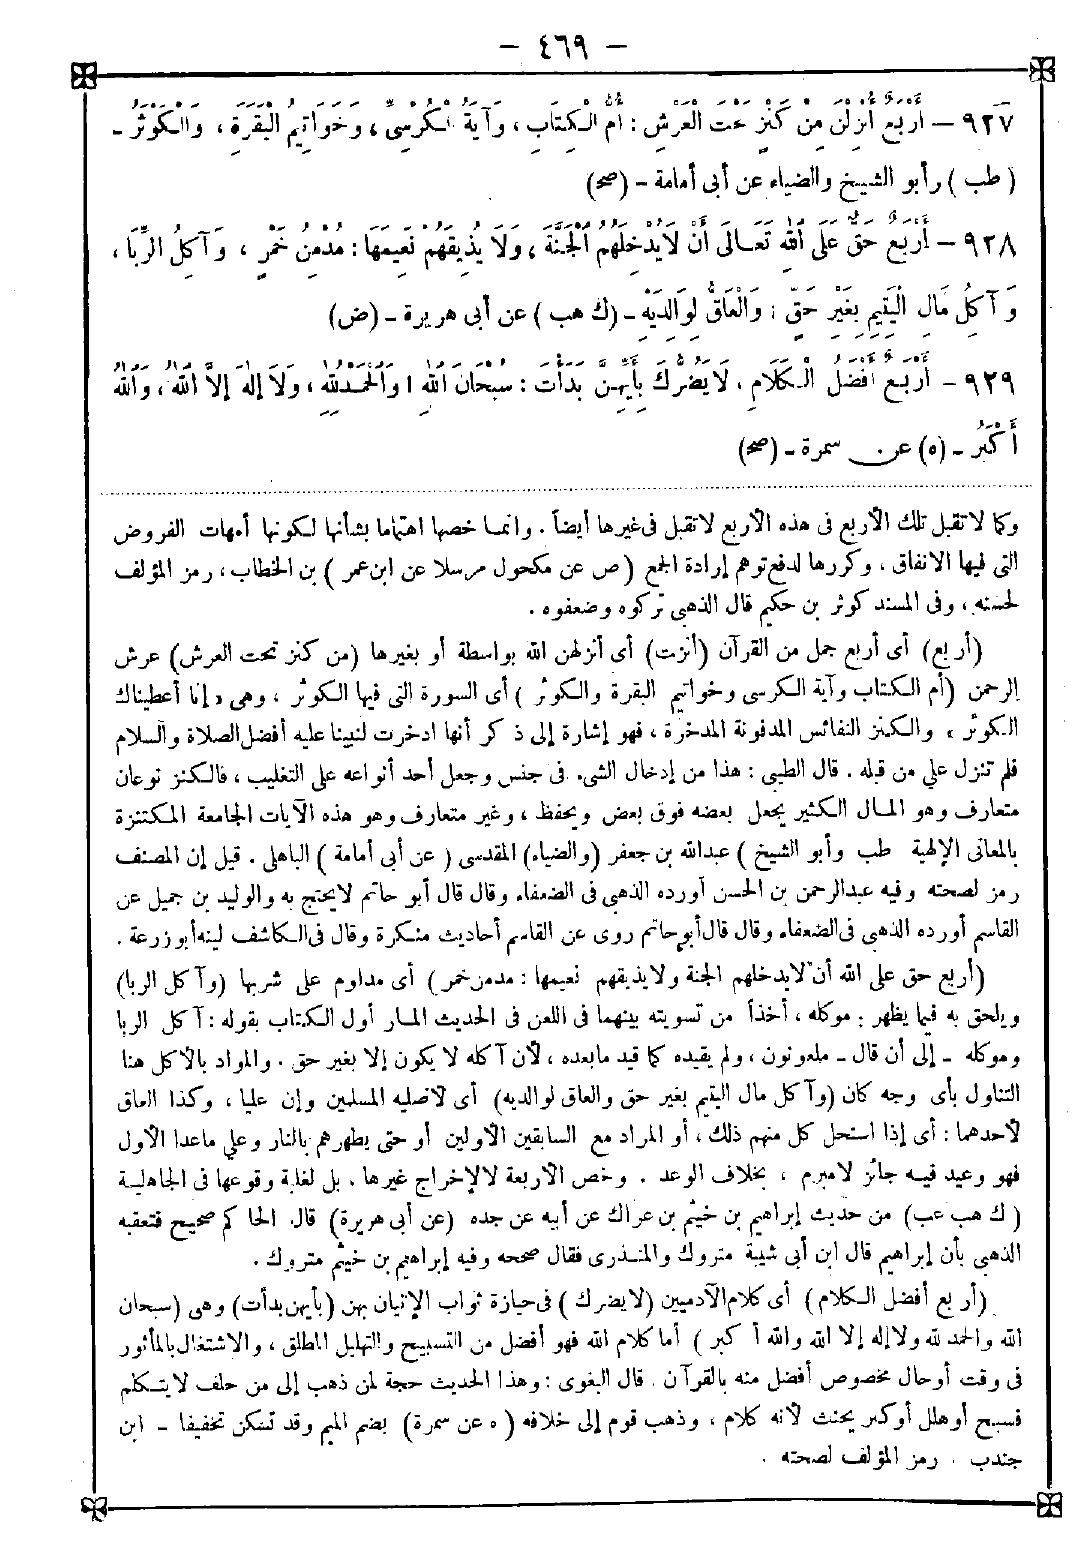 – ٤٦٩ –
٩٢٧ – أَرْبَعٌ أُنْزِلْنَ مِنْ كَنْزٍ تَحْتَ الْعَرْشِ : أُمُّ الْكِتَابِ ، وَآيَةُ الْكُرْسِيِّ ، وَخَوَاتِيمُ الْبَقَرَةِ ، وَالْكَوْثَرُ –
( طب ) وأبو الشيخ والضياء عن أبى أمامة – (صح)
٩٢٨ – أَرْبَعٌ حَقٌّ عَلَى اللهِ تَعَالَى أَنْ لَا يُدْخِلَهُمُ الْجَنَّةَ ، وَلَا يُذِيقَهُمْ نَعِيمَهَا : مُدْمِنُ خَمْرٍ ، وَآكِلُ الرِّبَا ،
وَآكِلُ مَالِ الْيَتِيمِ بِغَيْرِ حَقٍّ ، وَالْعَاقُّ لِوَالِدَيْهِ – (ك هب ) عن أبى هريرة – (ض)
٩٢٩ – أَرْبَعٌ أَفْضَلُ الْكَلَامِ ، لَا يَضُرُّكَ بِأَيِّهِنَّ بَدَأْتَ : سُبْحَانَ اللهِ ، وَالْحَمْدُ لِلهِ ، وَلَا إِلَهَ إِلَّا اللهُ ، وَاللهُ
أَكْبَرُ – (ه) عن سمرة – (صح)
وكما لا تقبل تلك الأربع فى هذه الأربع لا تقبل فى غيرها أيضاً . وإنما خصها اهتماما بشأنها لكونها أمهات الفروض
التى فيها الانفاق ، وكررها لدفع توهم إرادة الجمع ( ص عن مكحول مرسلا عن ابن عمر ) بن الخطاب ، رمز المؤلف
لحسنه ، وفى المسند كوثر بن حكيم قال الذهبى تركوه وضعفوه .
(أربع) أى أربع جمل من القرآن (أنزلت) أى أنزلهن الله بواسطة أو بغيرها (من كنز تحت العرش) عرش
الرحمن (أم الكتاب وآية الكرسى وخواتيم البقرة والكوثر ) أى السورة التى فيها الكوثر ، وهى «إنا أعطيناك
الكوثر » والكنز النفائس المدفونة المدخرة ، فهو إشارة إلى ذكر أنها ادخرت لنبينا عليه أفضل الصلاة والسلام
فلم تنزل علي من قبله . قال الطيبى : هذا من إدخال الشىء فى جنس وجعل أحد أنواعه على التغليب ، فالكنز نوعان
متعارف وهو المال الكثير يجعل بعضه فوق بعض ويحفظ ، وغير متعارف وهو هذه الآيات الجامعة المكتنزة
بالمعانى الإلهية طب وأبو الشيخ ) عبدالله بن جعفر (والضياء) المقدسى ( عن أبى أمامة ) الباهلى . قيل إن المصنف
رمز لصحته وفيه عبدالرحمن بن الحسن أورده الذهبى فى الضعفاء وقال قال أبو حاتم لايحتج به والوليد بن جميل عن
القاسم أورده الذهبى فى الضعفاء وقال قال أبو حاتم روى عن القاسم أحاديث منكرة وقال فى الكاشف لينه أبو زرعة .
(أربع حق على الله أن لايدخلهم الجنة ولايذيقهم نعيمها : مدمن خمر ) أى مداوم على شربها (وآكل الربا)
ويلحق به فيما يظهر : موكله ، أخذاً من تسويته بينهما فى اللعن فى الحديث المار أول الكتاب بقوله : آكل الربا
وموكله – إلى أن قال – ملعونون ، ولم يقيده كما قيد مابعده ، لأن آكله لا يكون إلا بغير حق . والمراد بالأكل هنا
التناول بأى وجه كان (وآكل مال اليتيم بغير حق والعاق لوالديه) أى لأصليه المسلمين وإن عليا ، وكذا العاق
لأحدهما : أى إذا استحل كل منهم ذلك ، أو المراد مع السابقين الأولين أو حتى يطهرهم بالنار وعلي ماعدا الأول
فهو وعيد فيه جائز لامبرم ، بخلاف الوعد . وخص الأربعة لا لإخراج غيرها . بل لغلبة وقوعها فى الجاهلية
( ك هب عب) من حديث إبراهيم بن خيثم بن عراك عن أبيه عن جده (عن أبى هريرة) قال الحاكم صحيح فتعقبه
الذهبى بأن إبراهيم قال ابن أبى شيبة متروك والمنذرى فقال صححه وفيه إبراهيم بن خيثم متروك .
(أربع أفضل الكلام ) أى كلام الآدميين (لايضرك ) فى حيازة ثواب الإتيان بهن (بأيهن بدأت) وهى (سبحان
الله والحمد لله ولا إله إلا الله والله أكبر ) أما كلام الله فهو أفضل من التسبيح والتهليل المطلق ، والاشتغال بالمأثور
فى وقت أوحال مخصوص أفضل منه بالقرآن . قال البغوى : وهذا الحديث حجة لمن ذهب إلى من حلف لايتكلم
فسبح أوهلل أوكبر يحنث لأنه كلام ، وذهب قوم إلى خلافه ( ه عن سمرة) بضم الميم وقد تسكن تخفيفا – ابن
جندب . رمز المؤلف لصحته .